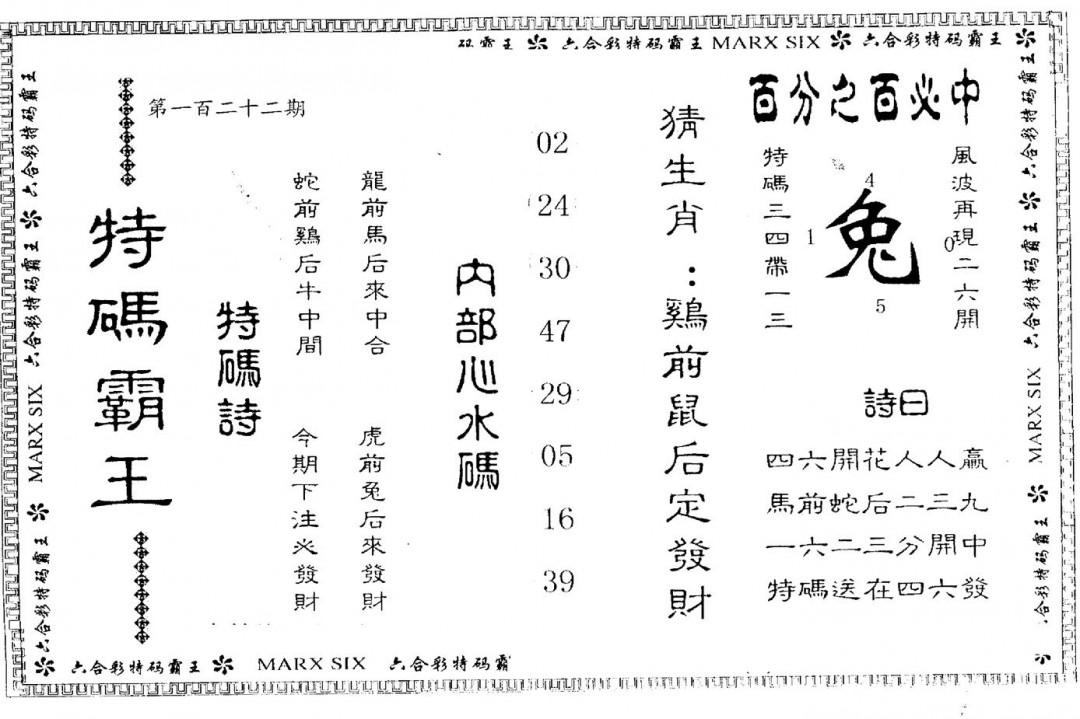 砡霸王 六合彩特码霸王 MARX SIX 六合彩特码霸王
六合彩特码霸王
六合彩特码霸王
MARX SIX
六合彩特码霸王
第一百二十二期
特碼霸王
特碼詩
龍前馬后來中合
蛇前鷄后牛中間
虎前兔后來發財
今期下注必發財
内部心水碼
02
24
30
47
29
05
16
39
猜生肖：鷄前鼠后定發財
百分之百必中
風波再現二六開
特碼三四帶一三
4
1
兔
0
5
詩曰
四六開花人人赢
馬前蛇后二三九
一六二三分開中
特碼送在四六發
六合彩特码霸王
六合彩特码霸王
MARX SIX
合彩特码霸王
六合彩特码霸王 MARX SIX 六合彩特码霸